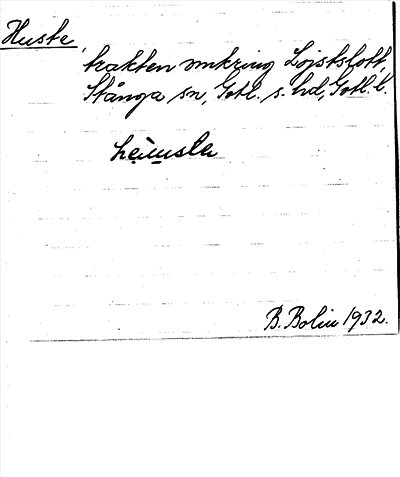 Huste,
trakten omkring Lojstslott,
Stånga sn, Gotl. s. hd, Gotl. l.
B. Bolin 1932.